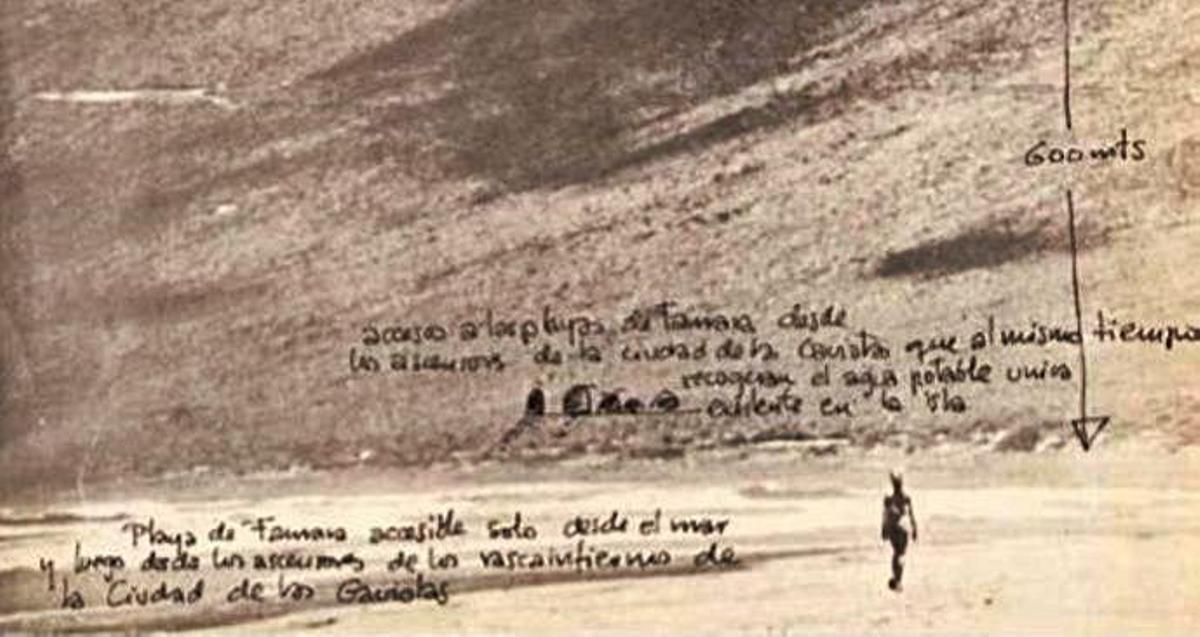 600 mts
acceso a las playas de Famara desde
los ascensores de la ciudad de las Gaviotas que al mismo tiempo
recogeran el agua potable unica
existente en la isla
Playa de Famara accesible solo desde el mar
y luego desde los ascensores de los rascainfiernos de
la Ciudad de las Gaviotas